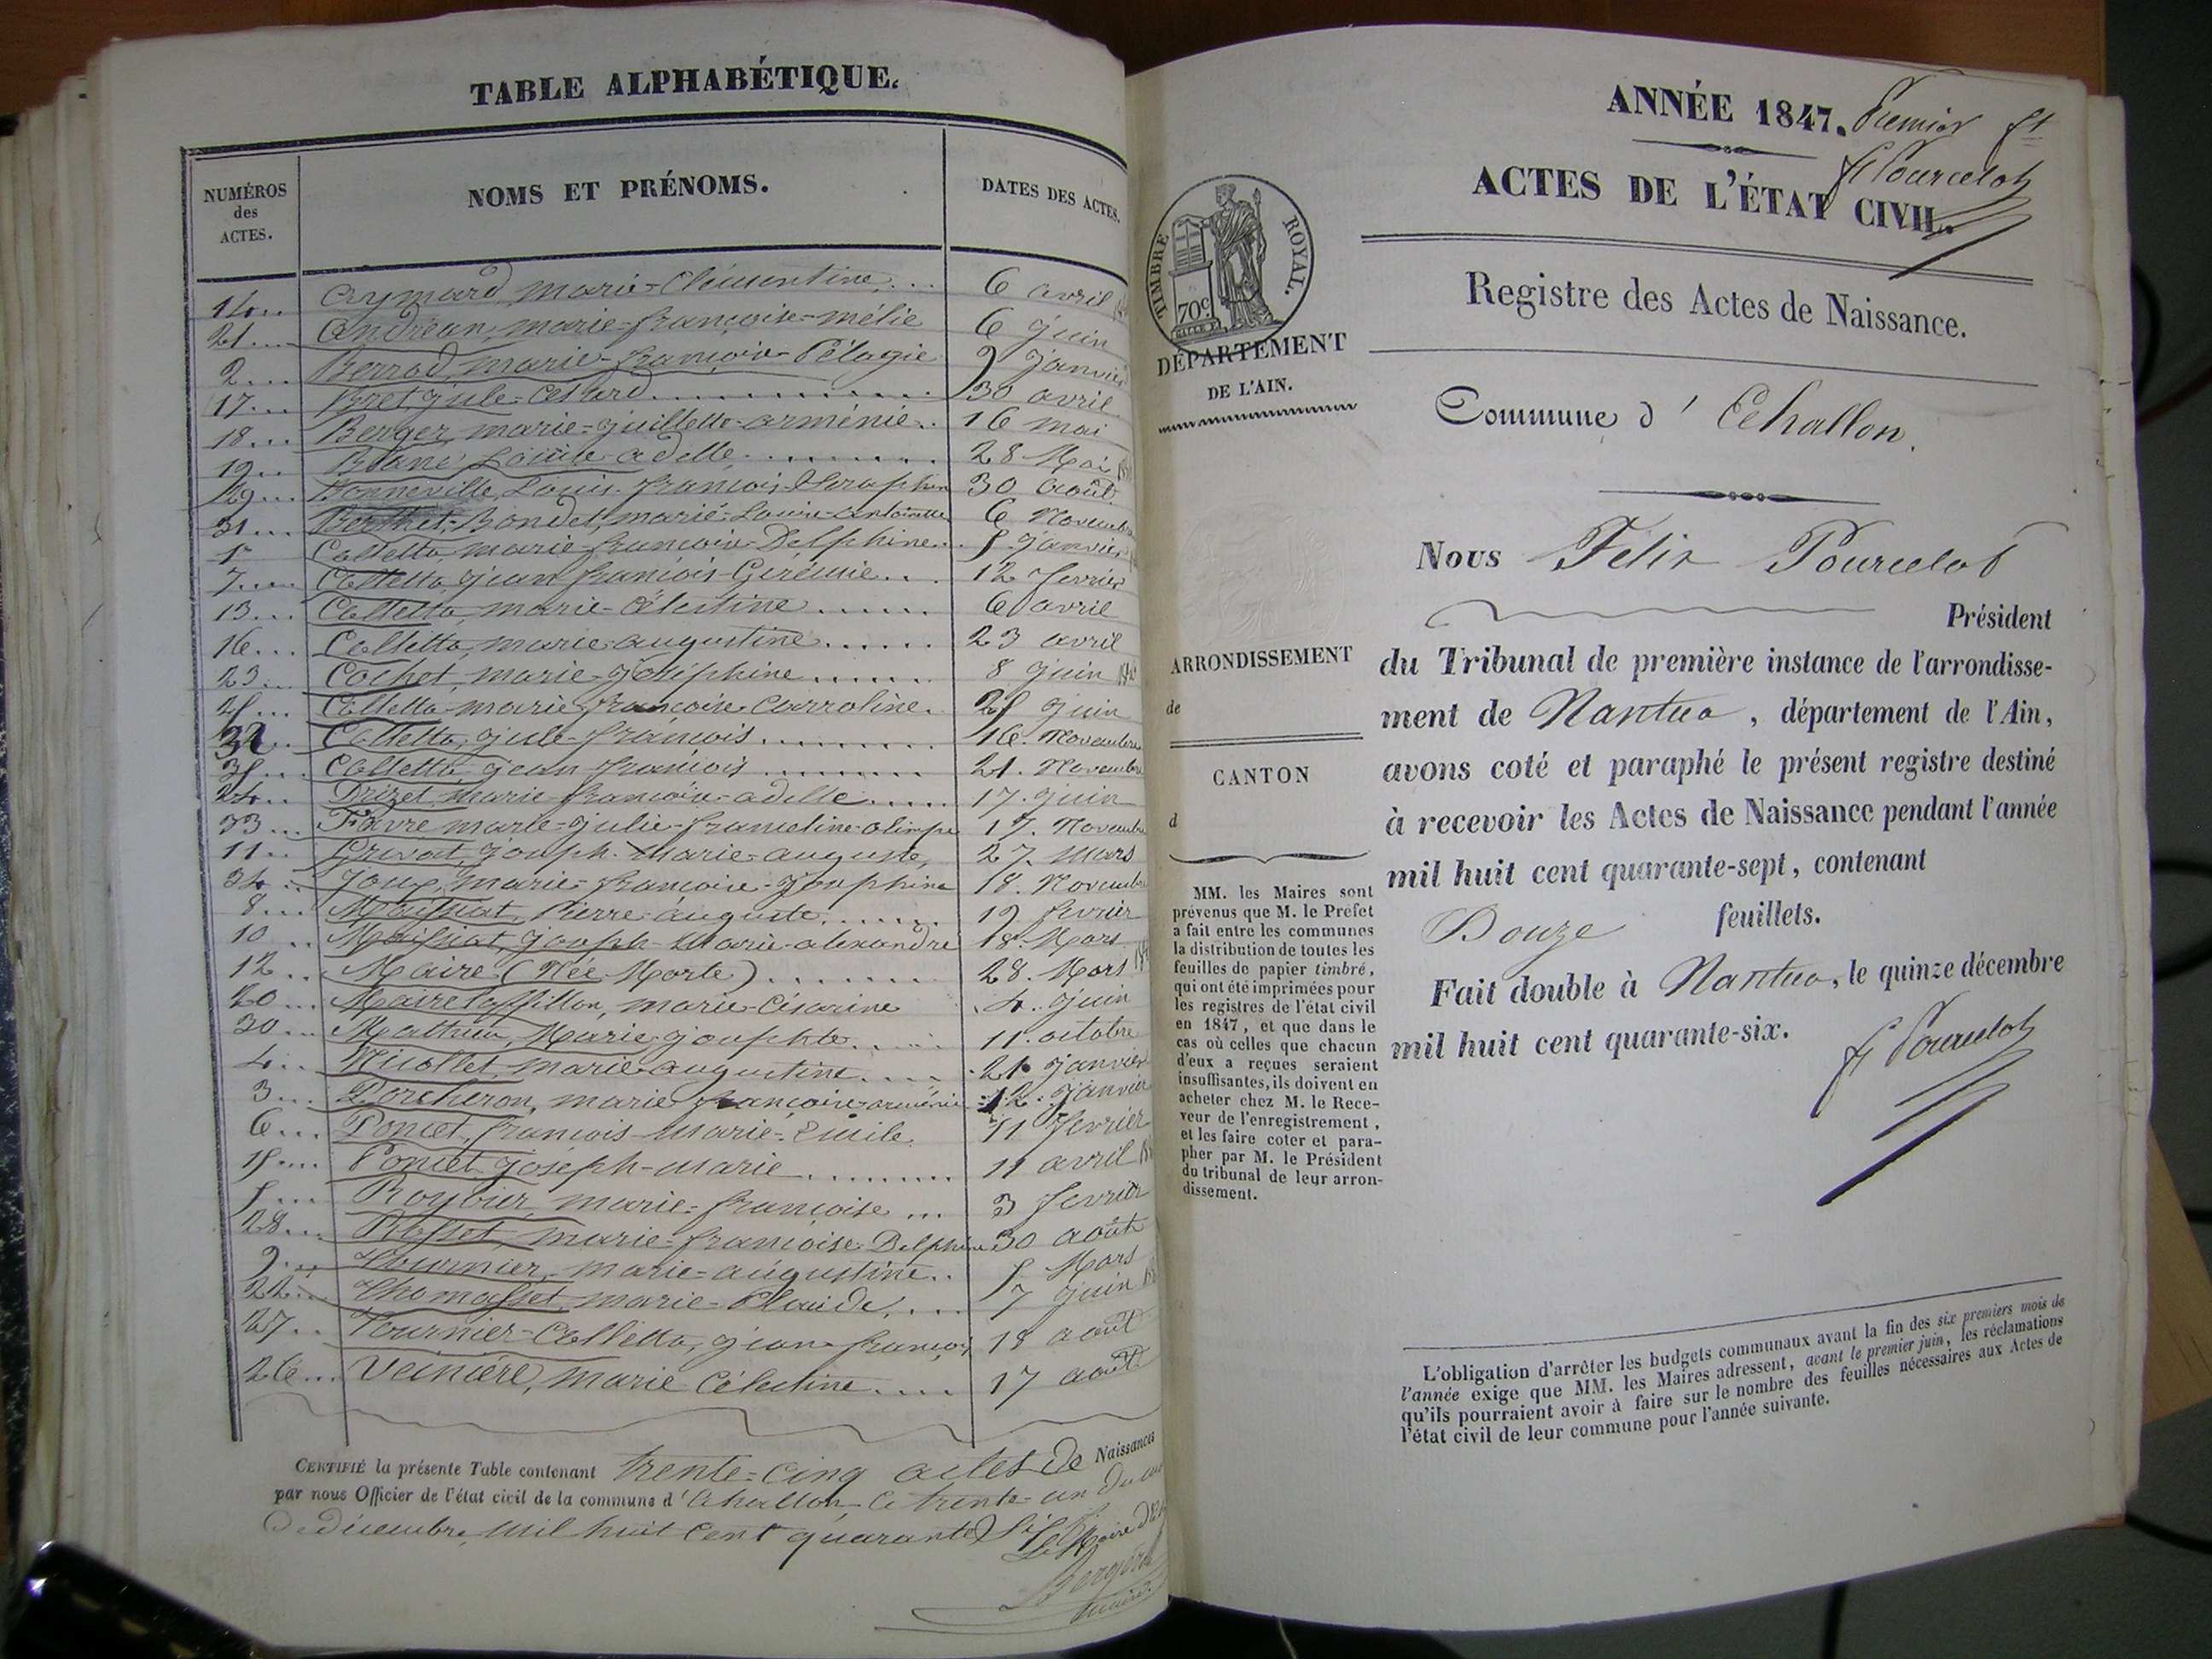 TABLE ALPHABÉTIQUE.
NUMÉROS des ACTES.
NOMS ET PRÉNOMS.
DATES DES ACTES.
14.. Aymard marie-Clémentine... 6 avril
21.... andréan, marie-françoise-mélie 6 juin
2.... Berrod, marie-françoise-Pélagie 9 janvier
17... Bret, jule-Cesard........... 30 avril
18... Berger, marie-juillette-arménie.. 16 mai
19.. Blanc Louise-adelle.......... 28 Mai
29... Bonneville, Louis-françois-Séraphin 30 août
31... Berthet-Bondet, marie-Louise-antoinette 6 Novembre
1er Colletta, marie-françoise-Delphine.. 5 janvier
7.... Colletta, jean françois-Gérémie... 12 fevrier
13... Colletta, marie-Célestine...... 6 avril
16... Colletta, marie-augustine...... 23 avril
23... Cochet, marie-joséphine...... 8 juin
25... Colletta-marie françoise Carroline. 25 juin
32.. Colletta, jule-françois........ 16. Novembre
35... Colletta jean françois........ 21. Novembre
24.. Drizet marie-françoise-adelle..... 17. juin
33... Favre marie-julie-franceline-olimpe 17. Novembre
11.. Grivat, joseph-Marie-auguste, 27. Mars
34.. Joux, marie-françoise-Josephine 18. Novembre
8... Maissiat, Pierre-auguste....... 19 fevrier
10.. Maissiat, joseph-Marie-alexandre 18. Mars
12.. Maire (Née Morte)....... 28. Mars
20... Maire loffillon, marie-Césarine 4. juin
30... Mathieu, Marie-josephte..... 11. octobre
4... Nicollet, marie-augustine..... 21. janvier
3... Porcheron, marie françoise-arménie 12. Janvier
6... Poncet, françois-Marie-Emile. 11 fevrier
15.... Poncet joseph-marie......... 11 avril
5.... Roybier, marie-françoise... 3 fevrier
28... Rosset, marie-françoise Delphine 30 août
9... Thournier, marie-augustine.. 5 Mars
22... Thomasset, marie-Claude,.... 7 juin
27.. Tournier-Colletta, jean françois 18 août
26... Veinière, Marie Célestine.... 17 août
CERTIFIÉ la présente Table contenant trente-cinq actes de Naissances
par nous Officier de l'état civil de la commune d'Echallon, ce trente-un du mois
De décembre, mil huit cent quarante Six
Le Maire
maire
ANNÉE 1847. Premier ft
f Pourcelot
ACTES DE L'ÉTAT CIVIL.
Registre des Actes de Naissance.
TIMBRE ROYAL.
70c
DÉPARTEMENT
DE L'AIN.
ARRONDISSEMENT
de
CANTON
d
MM. les Maires sont
prévenus que M. le Préfet
a fait entre les communes
la distribution de toutes les
feuilles de papier timbré,
qui ont été imprimées pour
les registres de l'état civil
en 1847, et que dans le
cas où celles que chacun
d'eux a reçues seraient
insuffisantes, ils doivent en
acheter chez M. le Rece-
veur de l'enregistrement,
et les faire coter et para-
pher par M. le Président
du tribunal de leur arron-
dissement.
Commune d'Echallon.
Nous Felix Pourcelot
Président
du Tribunal de première instance de l'arrondisse-
ment de Nantua, département de l'Ain,
avons coté et paraphé le présent registre destiné
à recevoir les Actes de Naissance pendant l'année
mil huit cent quarante-sept, contenant
Douze feuillets.
Fait double à Nantua, le quinze décembre
mil huit cent quarante-six.
f Pourcelot
L'obligation d'arrêter les budgets communaux avant la fin des six premiers mois de
l'année exige que MM. les Maires adressent, avant le premier juin, les réclamations
qu'ils pourraient avoir à faire sur le nombre des feuilles nécessaires aux Actes de
l'état civil de leur commune pour l'année suivante.